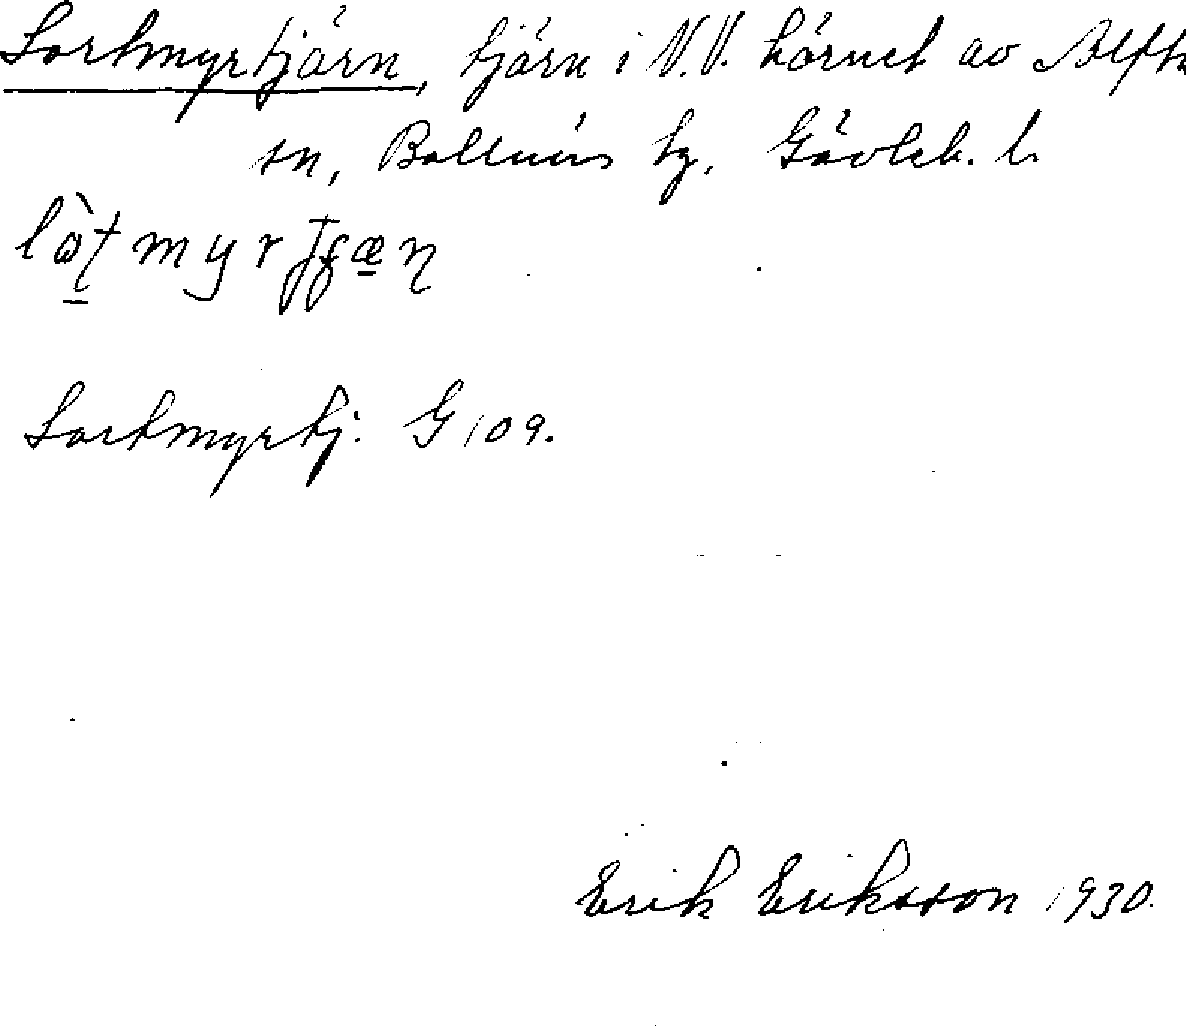 Lortmyrtjärn, tjärn i N.V. hörnet av Alfta
sn, Bollnäs tg, Gävleb. l.
Lortmyrtj. G 109.
Erik Eriksson 1930.